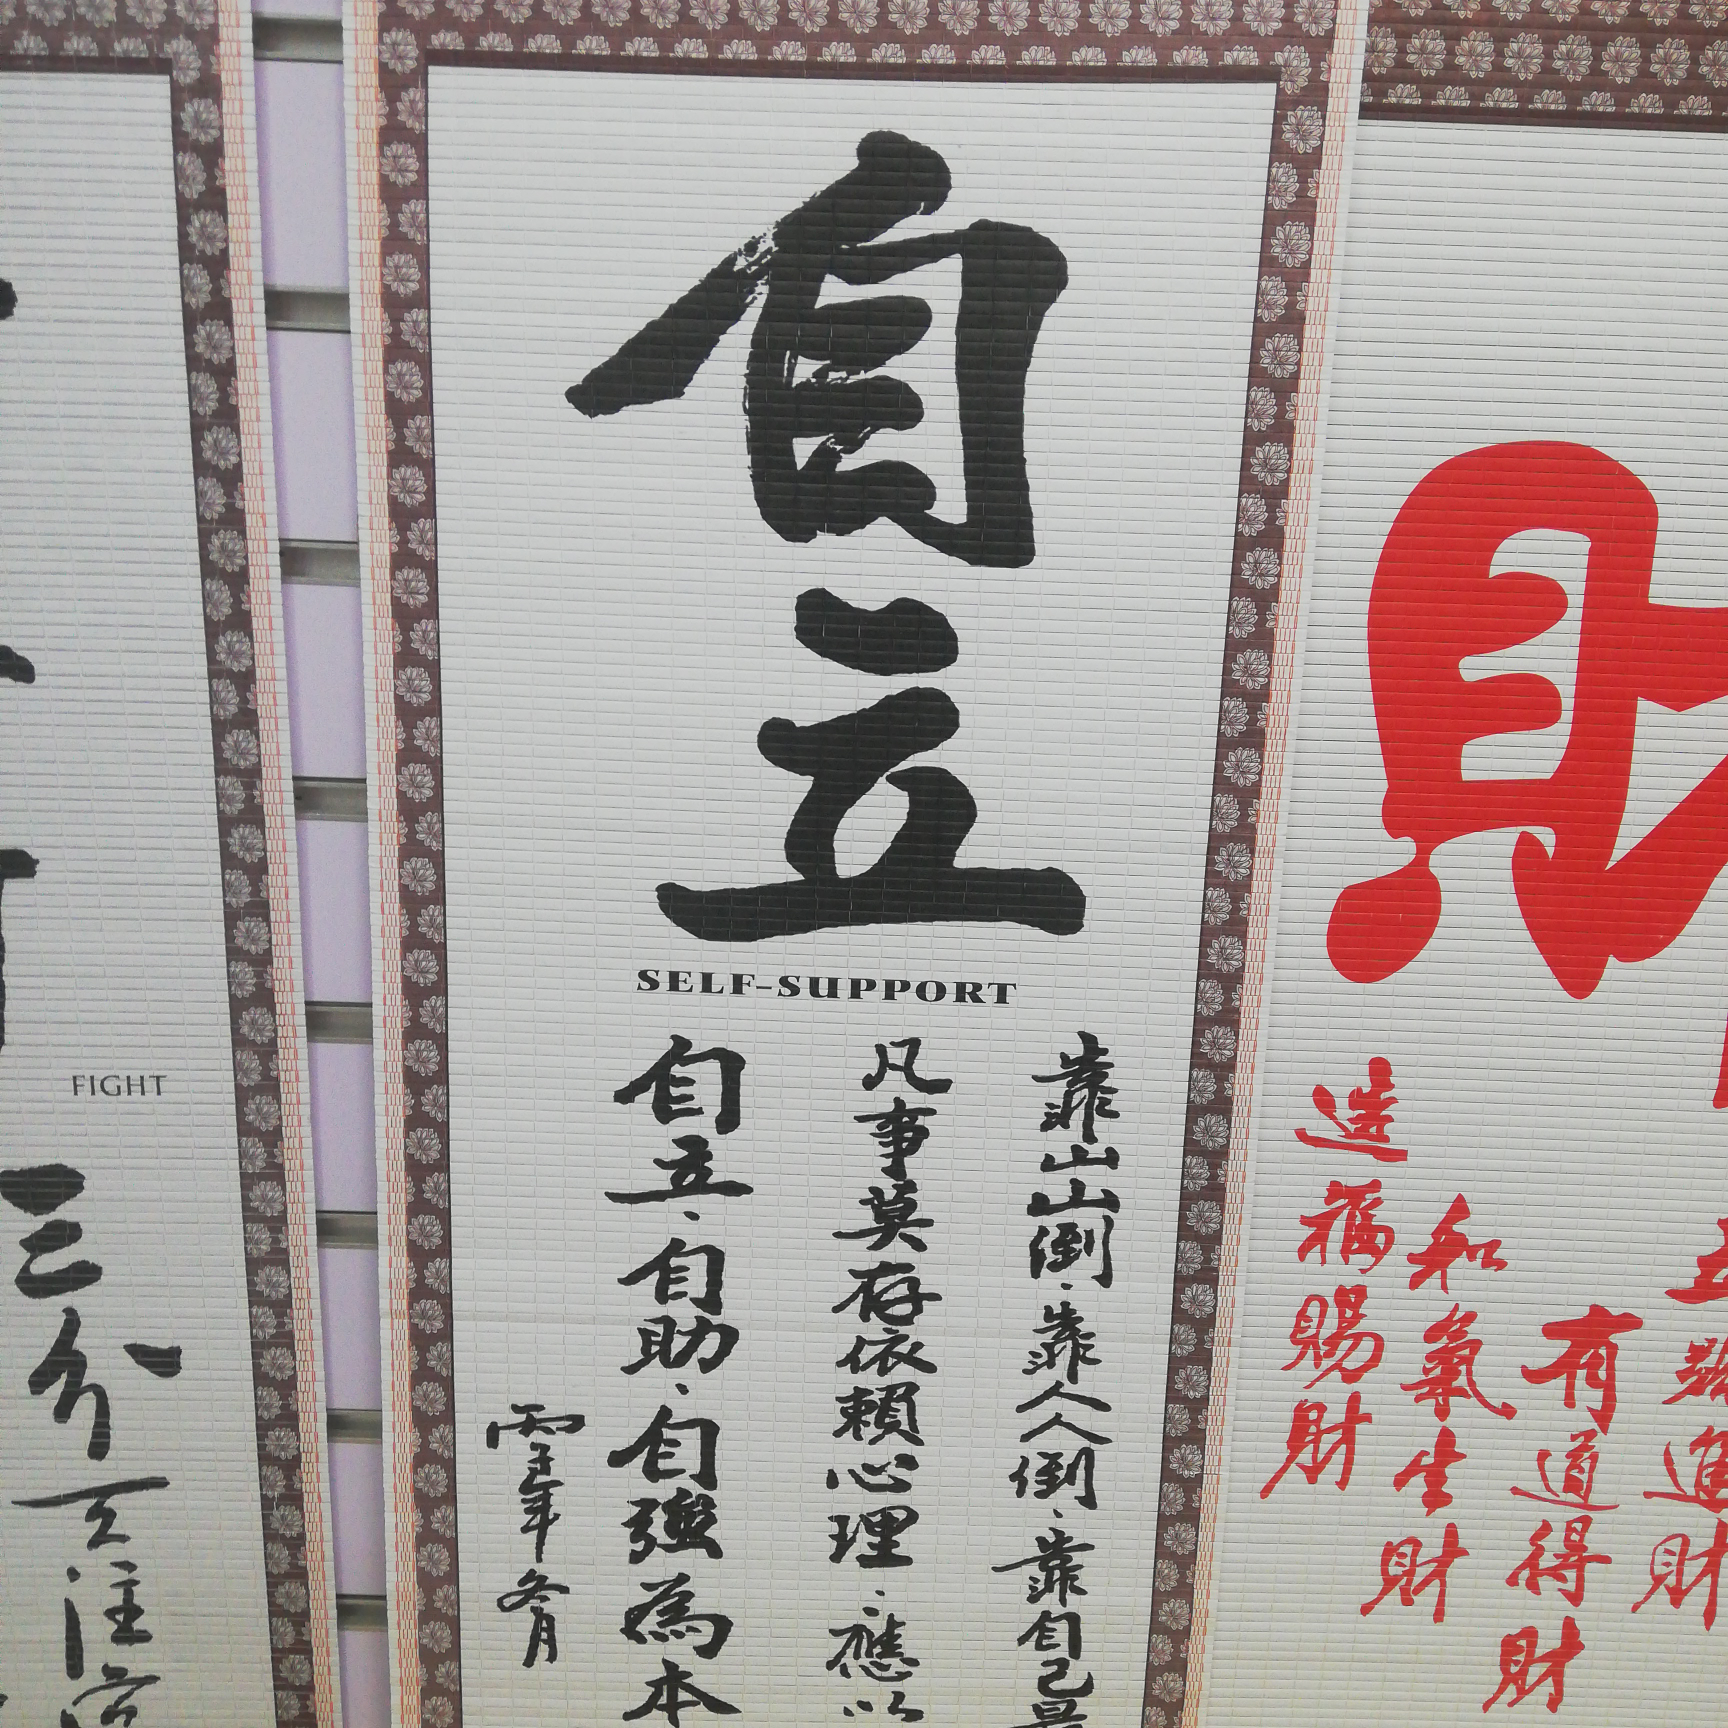 自立
SELF-SUPPORT
靠山山倒·靠人人倒·靠自己最
凡事莫存依賴心理·應以
自立·自助·自強為本
年冬月
FIGHT
三分天注
財
進財
有道得財
和氣生財
造福賜財